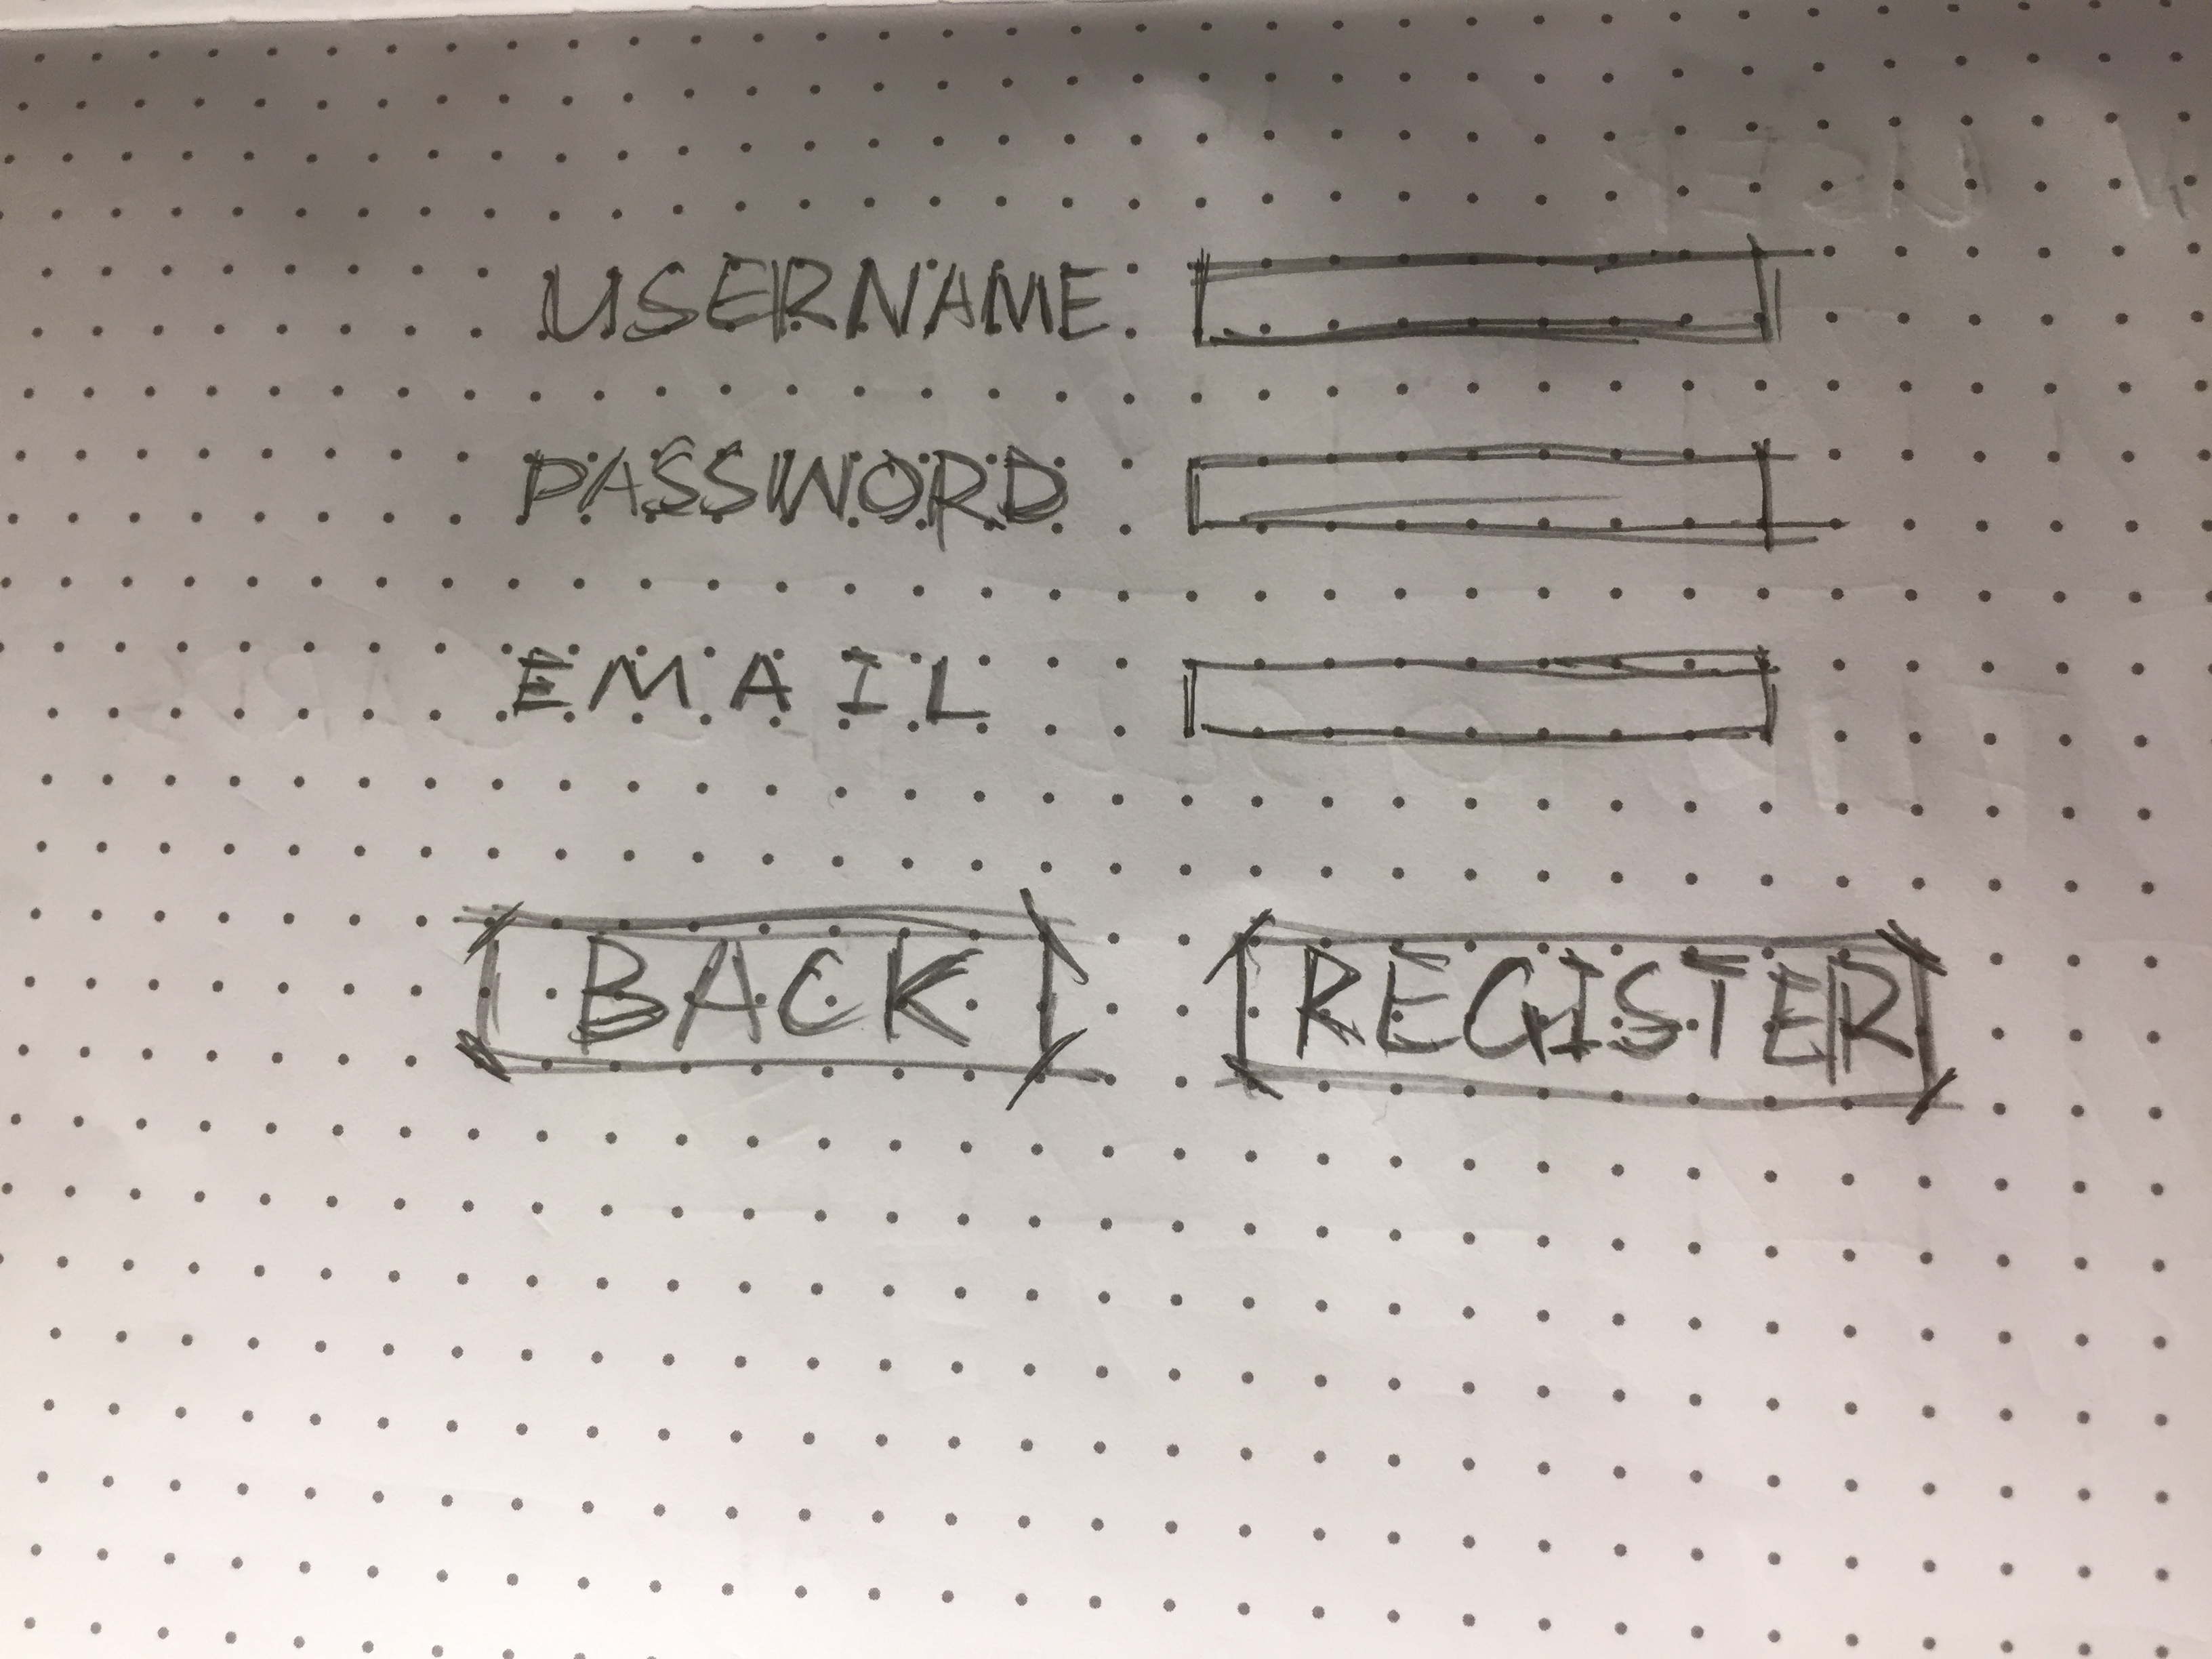 USERNAME
PASSWORD
EMAIL
BACK REGISTER